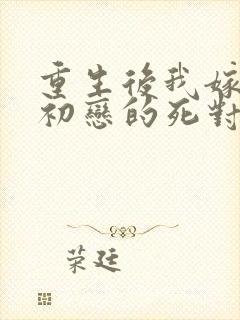 重生後我嫁
初戀的死對
荣廷